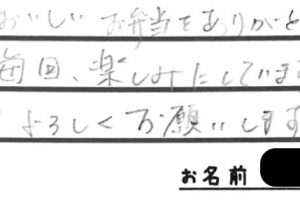 おいしいお弁当をありがと
毎回、楽しみにしています
よろしくお願いします
お名前